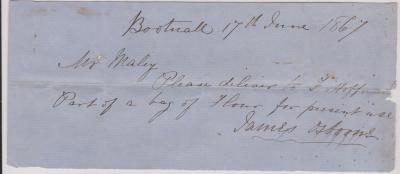 Bootnall 17th June 1867
Mr Maley
Please deliver to T
Part of a bag of Flour for present use
James Osborne